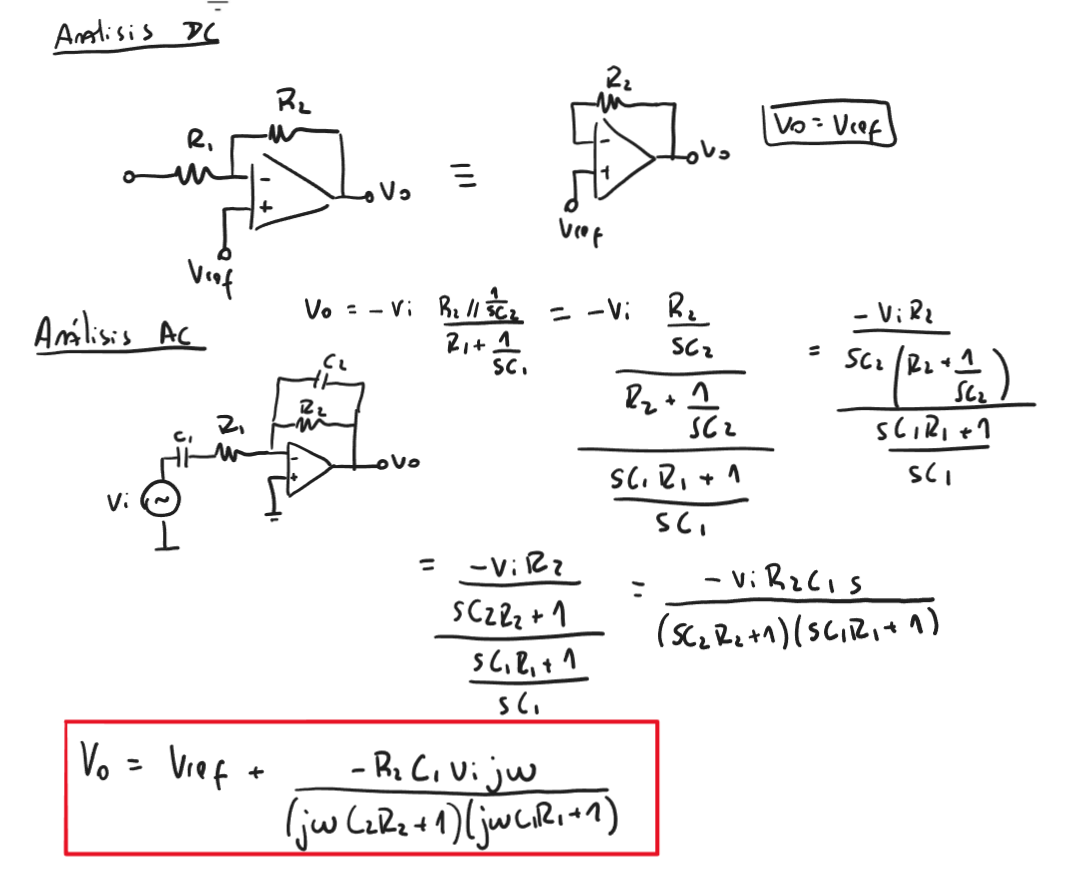 Análisis DC
R₁ R₂ - + Vo Vref
≡
R₂ - + Vo Vref
Vo = Vref
Análisis AC
Vo = -Vi (R₂ // 1/(SC₂)) / (R₁ + 1/(SC₁)) = -Vi ((R₂/(SC₂)) / (R₂ + 1/(SC₂))) / ((SC₁R₁ + 1)/(SC₁)) = (-ViR₂ / (SC₂(R₂ + 1/(SC₂)))) / ((SC₁R₁ + 1)/(SC₁))
Vi ~ C₁ R₁ C₂ R₂ - + Vo
= (-ViR₂ / (SC₂R₂ + 1)) / ((SC₁R₁ + 1)/(SC₁)) = -ViR₂C₁s / ((SC₂R₂+1)(SC₁R₁+1))
Vo = Vref + -R₂C₁Vijω / ((jωC₂R₂+1)(jωC₁R₁+1))